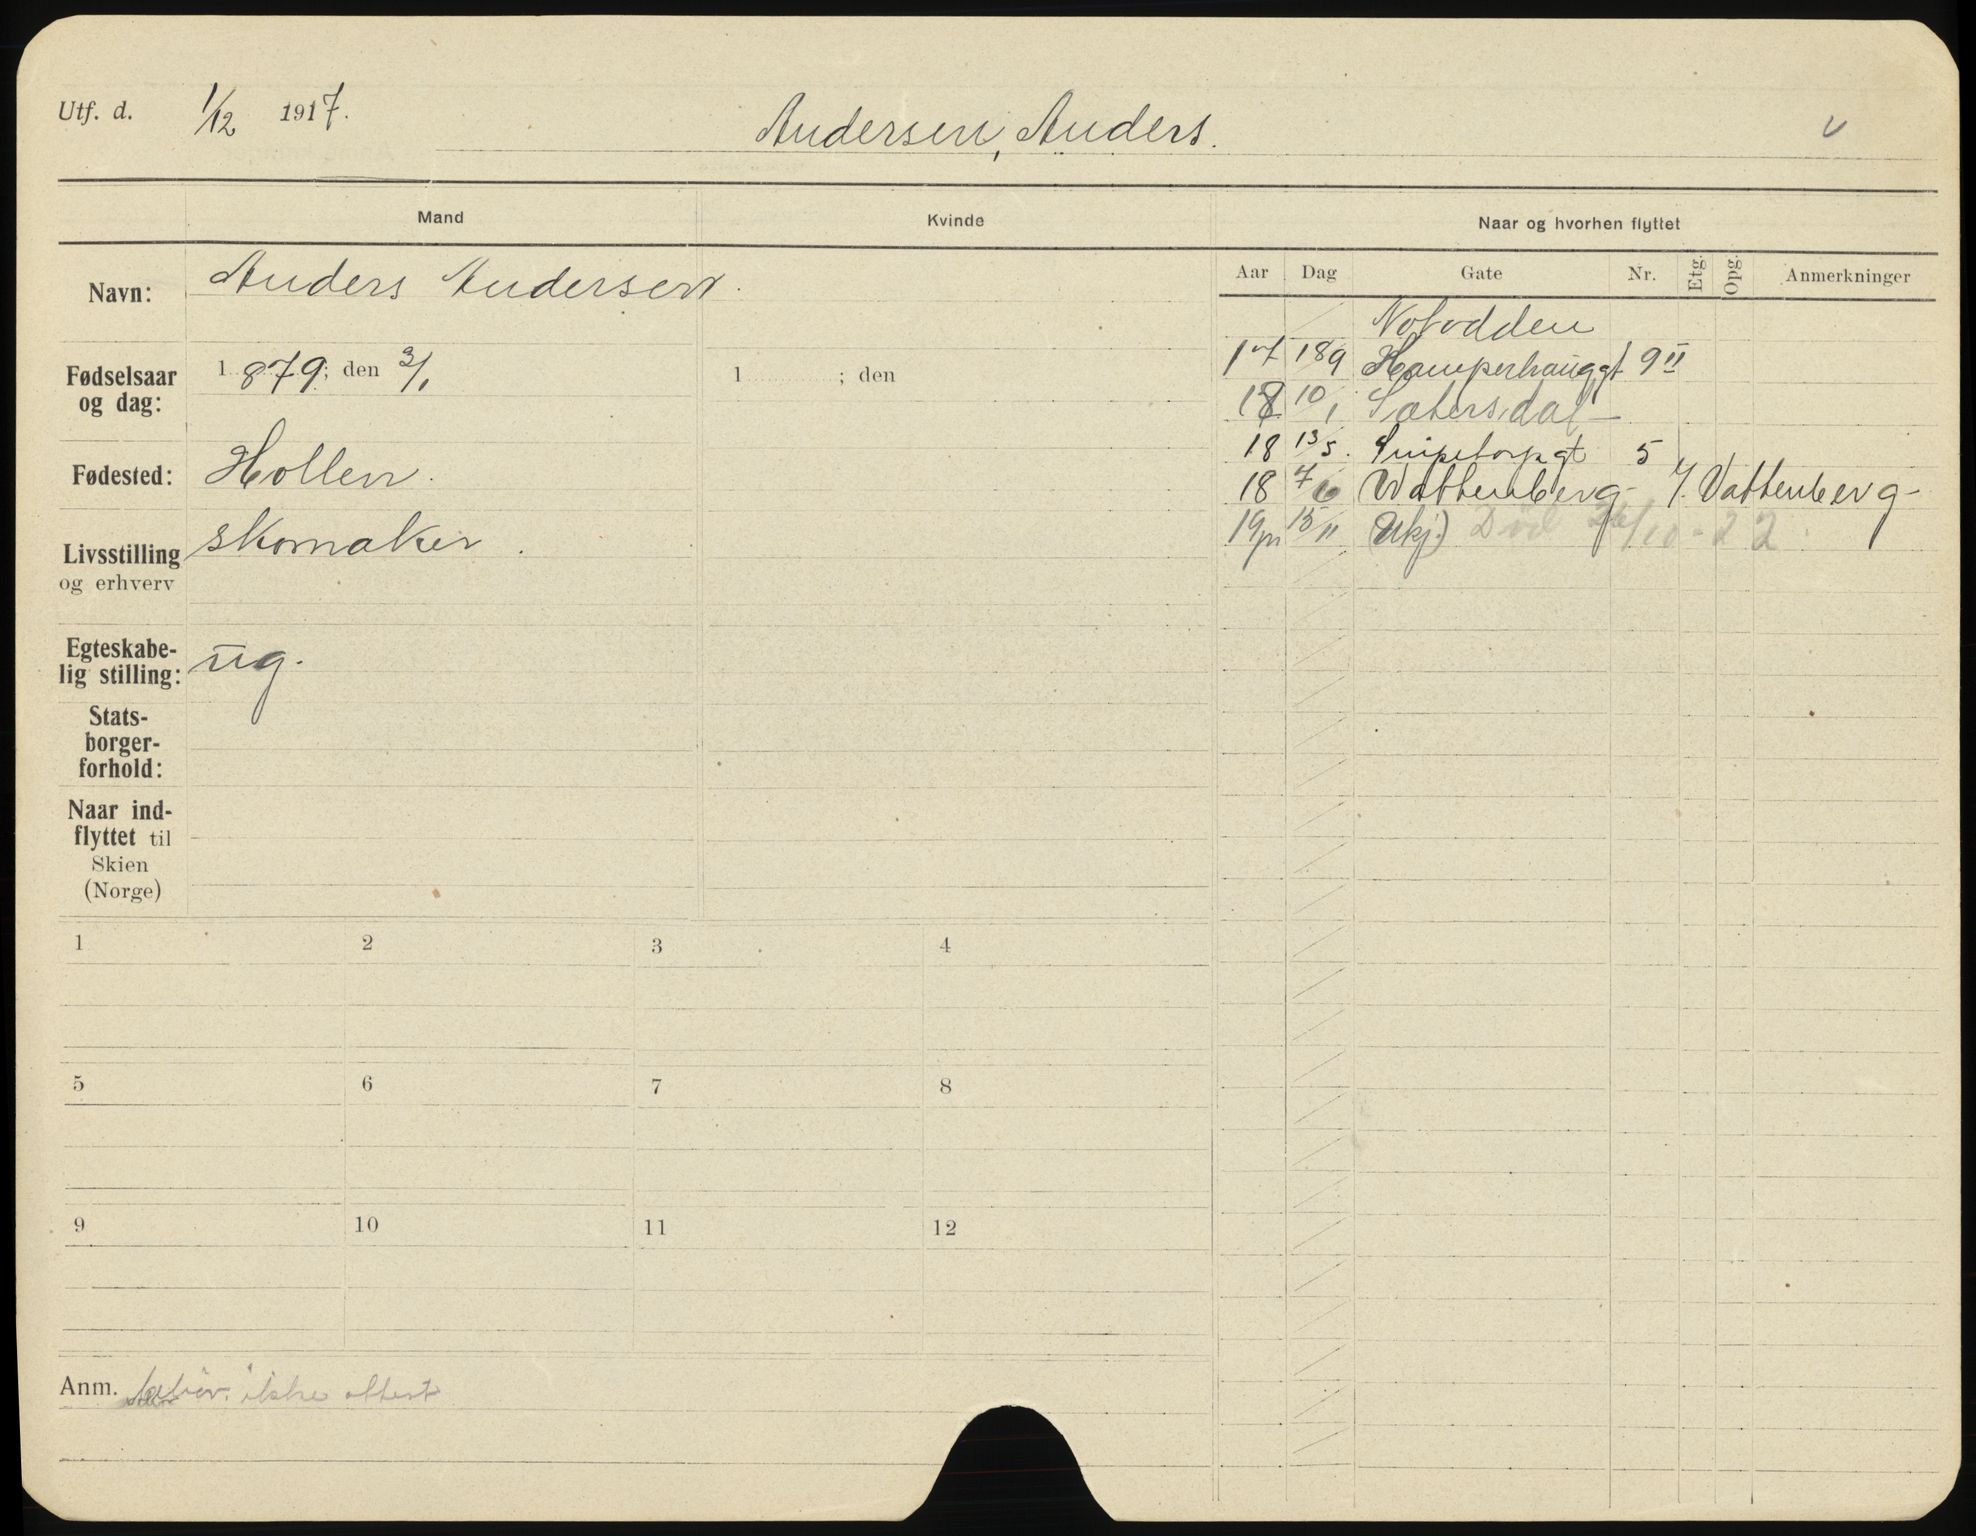 Utf. d. 1/12 1917.
Andersen, Anders.
Mand Kvinde Naar og hvorhen flyttet
Aar Dag Gate Nr. Etg. Opg. Anmerkninger
Navn: Anders Andersen.
Fødselsaar og dag: 1879; den 3/1 1 ; den
Fødested: Hollen.
Livsstilling og erhverv skomaker.
Egteskabe-
lig stilling: ug.
Stats-
borger-
forhold:
Naar ind-
flyttet til
Skien
(Norge)
Notodden
17 18/9 Hamperhauggt 9 II
18 10/1 Sætersdal
18 13/5. Snipetorpgt 5
18 7/6 Wattenberg J. Vattenberg
19 15/11 (Ukj.) Død 26/10-22
1 2 3 4
5 6 7 8
9 10 11 12
Anm. ikke attest